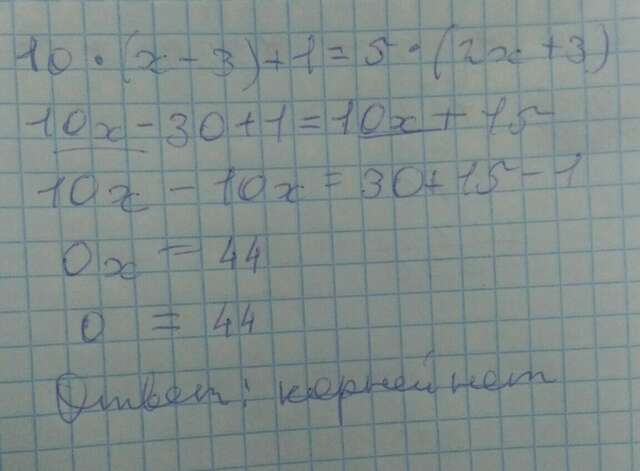 10 · (x - 3) + 1 = 5 · (2x + 3)
10x - 30 + 1 = 10x + 15
10x - 10x = 30 + 15 - 1
0x = 44
0 = 44
Ответ: корней нет